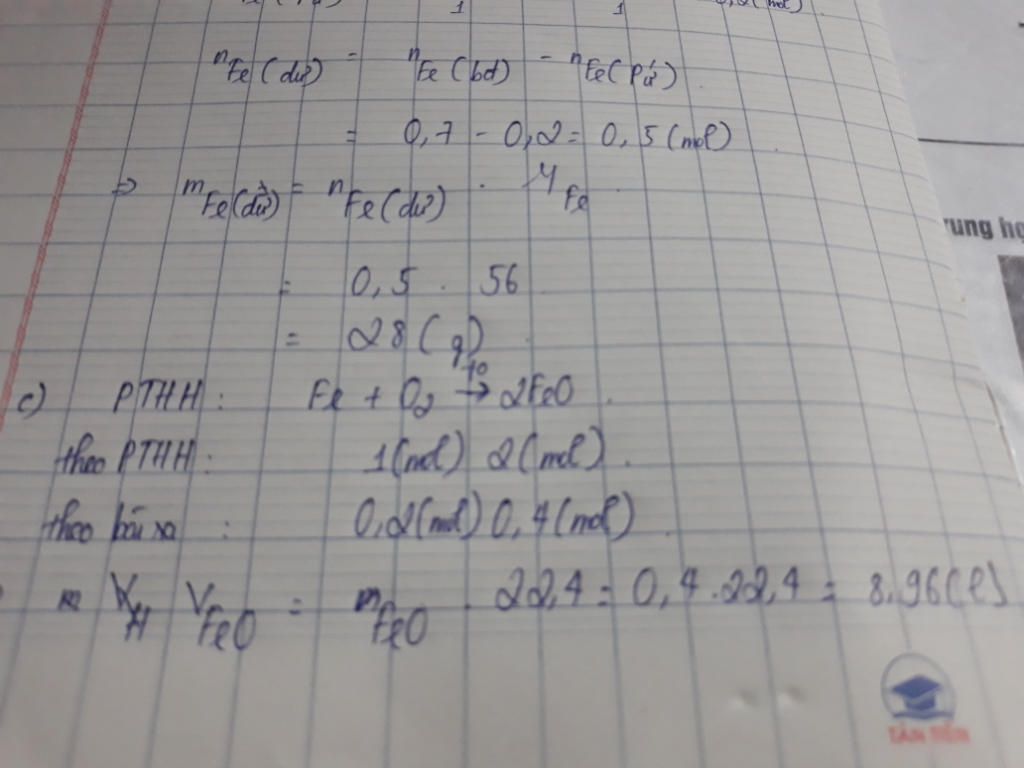 1 1 0,2 (mol)
nFe(dư) = nFe(bđ) - nFe(pứ)
= 0,7 - 0,2 = 0,5 (mol)
=> mFe(dư) = nFe(dư) . MFe
= 0,5 . 56
= 28 (g)
c) PTHH: Fe + O2 -t°-> 2FeO.
theo PTHH: 1(mol) 2(mol).
theo bài ra: 0,2(mol) 0,4(mol)
VFeO = nFeO . 22,4 = 0,4 . 22,4 = 8,96(l)
rung họ
TÂN TIẾN